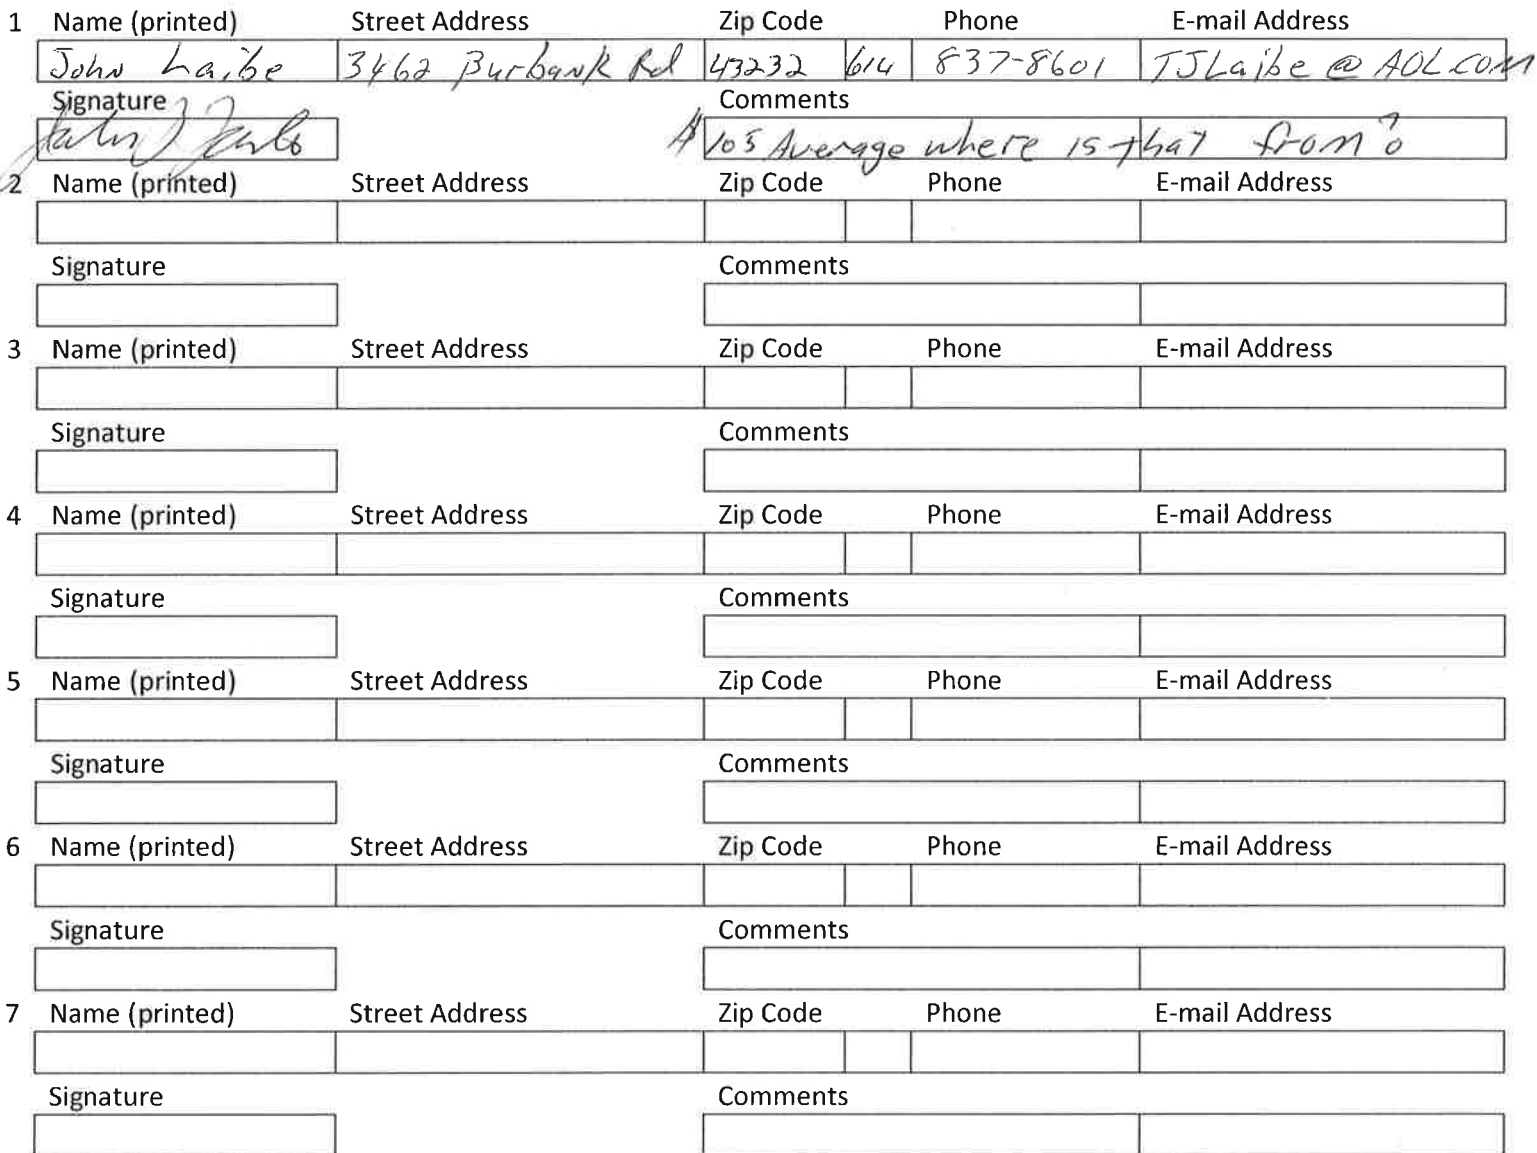 1 Name (printed) Street Address Zip Code Phone E-mail Address
John Laibe 3462 Burbank Rd 43232 614 837-8601 TJLaibe @ AOL.COM
Signature Comments
$105 Average where is that from?
2 Name (printed) Street Address Zip Code Phone E-mail Address
Signature Comments
3 Name (printed) Street Address Zip Code Phone E-mail Address
Signature Comments
4 Name (printed) Street Address Zip Code Phone E-mail Address
Signature Comments
5 Name (printed) Street Address Zip Code Phone E-mail Address
Signature Comments
6 Name (printed) Street Address Zip Code Phone E-mail Address
Signature Comments
7 Name (printed) Street Address Zip Code Phone E-mail Address
Signature Comments